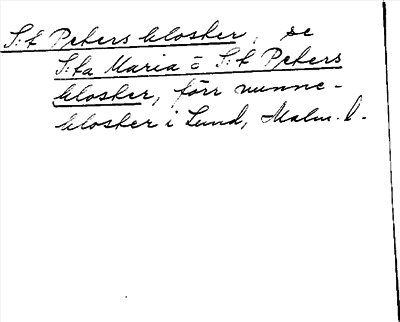 S:t Peters kloster, se
S:ta Maria o S:t Peters
kloster, förr nunne-
kloster i Lund, Malm. l.